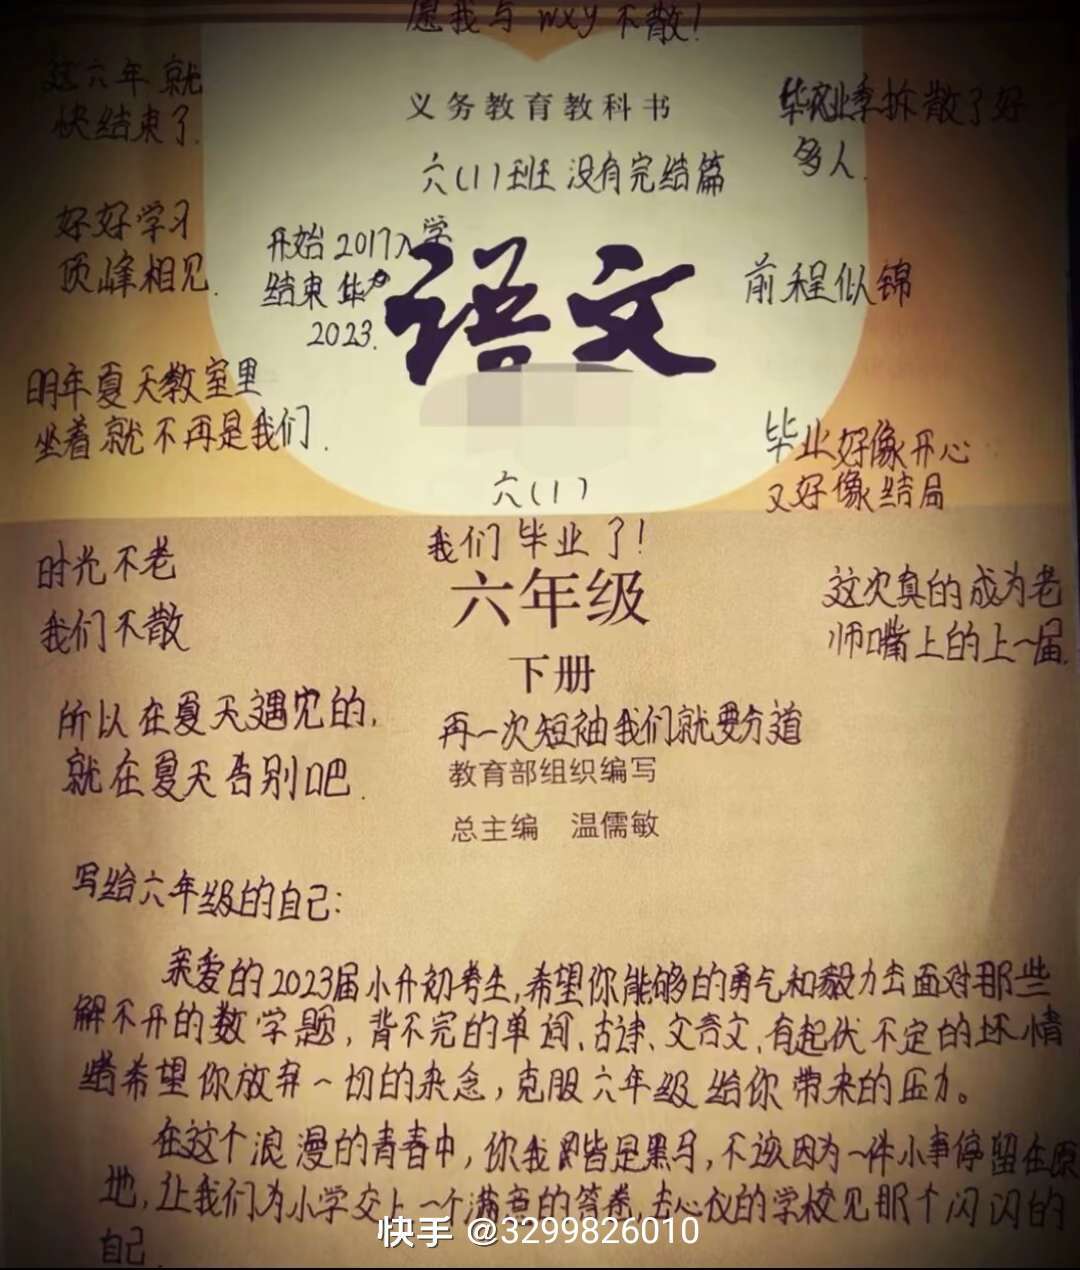 愿我与 wxy 不散!
这六年就
快结束了.
义务教育教科书
毕业季拆散了好
多人.
六(1)班 没有完结篇
好好学习
顶峰相见.
开始 2017入学
结束 毕业
2023.
语文
前程似锦
明年夏天教室里
坐着就不再是我们.
毕业好像开心
又好像结局
六(1)
我们毕业了!
时光不老
我们不散
六年级
下册
这次真的成为老
师嘴上的上一届.
所以在夏天遇见的,
就在夏天告别吧.
再一次短袖我们就要分道
教育部组织编写
总主编 温儒敏
写给六年级的自己:
亲爱的2023届小升初考生,希望你能够的勇气和毅力去面对那些
解不开的数学题,背不完的单词、古诗、文言文,有起伏不定的坏情
绪希望你放弃一切的杂念,克服六年级给你带来的压力。
在这个浪漫的青春中,你我皆是黑马,不该因为一件小事停留在原
地,让我们为小学交上一个满意的答卷,去心仪的学校见那个闪闪的
自己
快手 @3299826010